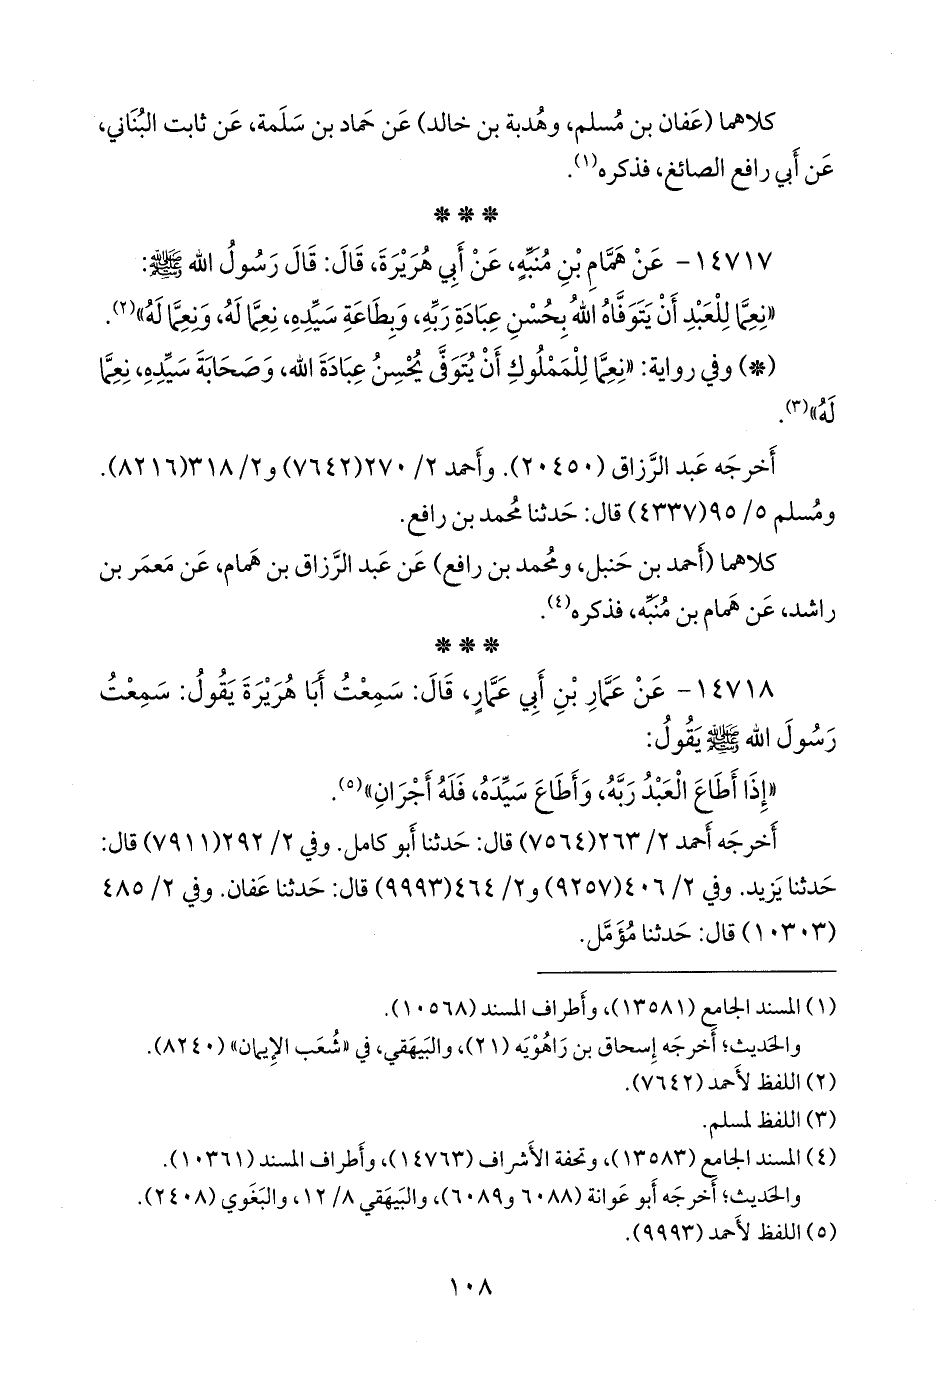 كلاهما (عَفان بن مُسلم، وهُدبة بن خالد) عَن حَماد بن سَلَمة، عَن ثابت البُنَاني،
عَن أَبي رافع الصائغ، فذكره(١).
* * *
١٤٧١٧- عَنْ هَمَّامِ بْنِ مُنَبِّهٍ، عَنْ أَبِي هُرَيْرَةَ، قَالَ: قَالَ رَسُولُ الله ﷺ:
«نِعِمَّا لِلْعَبْدِ أَنْ يَتَوَفَّاهُ اللهُ بِحُسْنِ عِبَادَةِ رَبِّهِ، وَبِطَاعَةِ سَيِّدِهِ، نِعِمَّا لَهُ، وَنِعِمَّا لَهُ»(٢).
(*) وفي رواية: «نِعِمَّا لِلْمَمْلُوكِ أَنْ يُتَوَفَّى يُحْسِنُ عِبَادَةَ الله، وَصَحَابَةَ سَيِّدِهِ، نِعِمَّا
لَهُ»(٣).
أَخرجَه عَبد الرَّزاق (٢٠٤٥٠). وأَحمد ٢/ ٢٧٠(٧٦٤٢) و٢/ ٣١٨(٨٢١٦).
ومُسلم ٥/ ٩٥(٤٣٣٧) قال: حَدثنا مُحمد بن رافع.
كلاهما (أَحمد بن حَنبل، ومُحمد بن رافع) عَن عَبد الرَّزاق بن هَمام، عَن مَعمَر بن
راشد، عَن هَمام بن مُنَبِّه، فذكره(٤).
* * *
١٤٧١٨- عَنْ عَمَّارِ بْنِ أَبِي عَمَّارٍ، قَالَ: سَمِعْتُ أَبَا هُرَيْرَةَ يَقُولُ: سَمِعْتُ
رَسُولَ الله ﷺ يَقُولُ:
«إِذَا أَطَاعَ الْعَبْدُ رَبَّهُ، وَأَطَاعَ سَيِّدَهُ، فَلَهُ أَجْرَانِ»(٥).
أَخرجَه أَحمد ٢/ ٢٦٣(٧٥٦٤) قال: حَدثنا أَبو كامل. وفي ٢/ ٢٩٢(٧٩١١) قال:
حَدثنا يَزيد. وفي ٢/ ٤٠٦(٩٢٥٧) و٢/ ٤٦٤(٩٩٩٣) قال: حَدثنا عَفان. وفي ٢/ ٤٨٥
(١٠٣٠٣) قال: حَدثنا مُؤَمَّل.
(١) المسند الجامع (١٣٥٨١)، وأَطراف المسند (١٠٥٦٨).
والحَديث؛ أَخرجَه إِسحاق بن رَاهُوْيَه (٢١)، والبَيهَقي، في «شُعَب الإِيمان» (٨٢٤٠).
(٢) اللفظ لأَحمد (٧٦٤٢).
(٣) اللفظ لمسلم.
(٤) المسند الجامع (١٣٥٨٣)، وتحفة الأَشراف (١٤٧٦٣)، وأَطراف المسند (١٠٣٦١).
والحَديث؛ أَخرجَه أَبو عَوانة (٦٠٨٨ و٦٠٨٩)، والبَيهَقي ٨/ ١٢، والبَغَوي (٢٤٠٨).
(٥) اللفظ لأَحمد (٩٩٩٣).
١٠٨